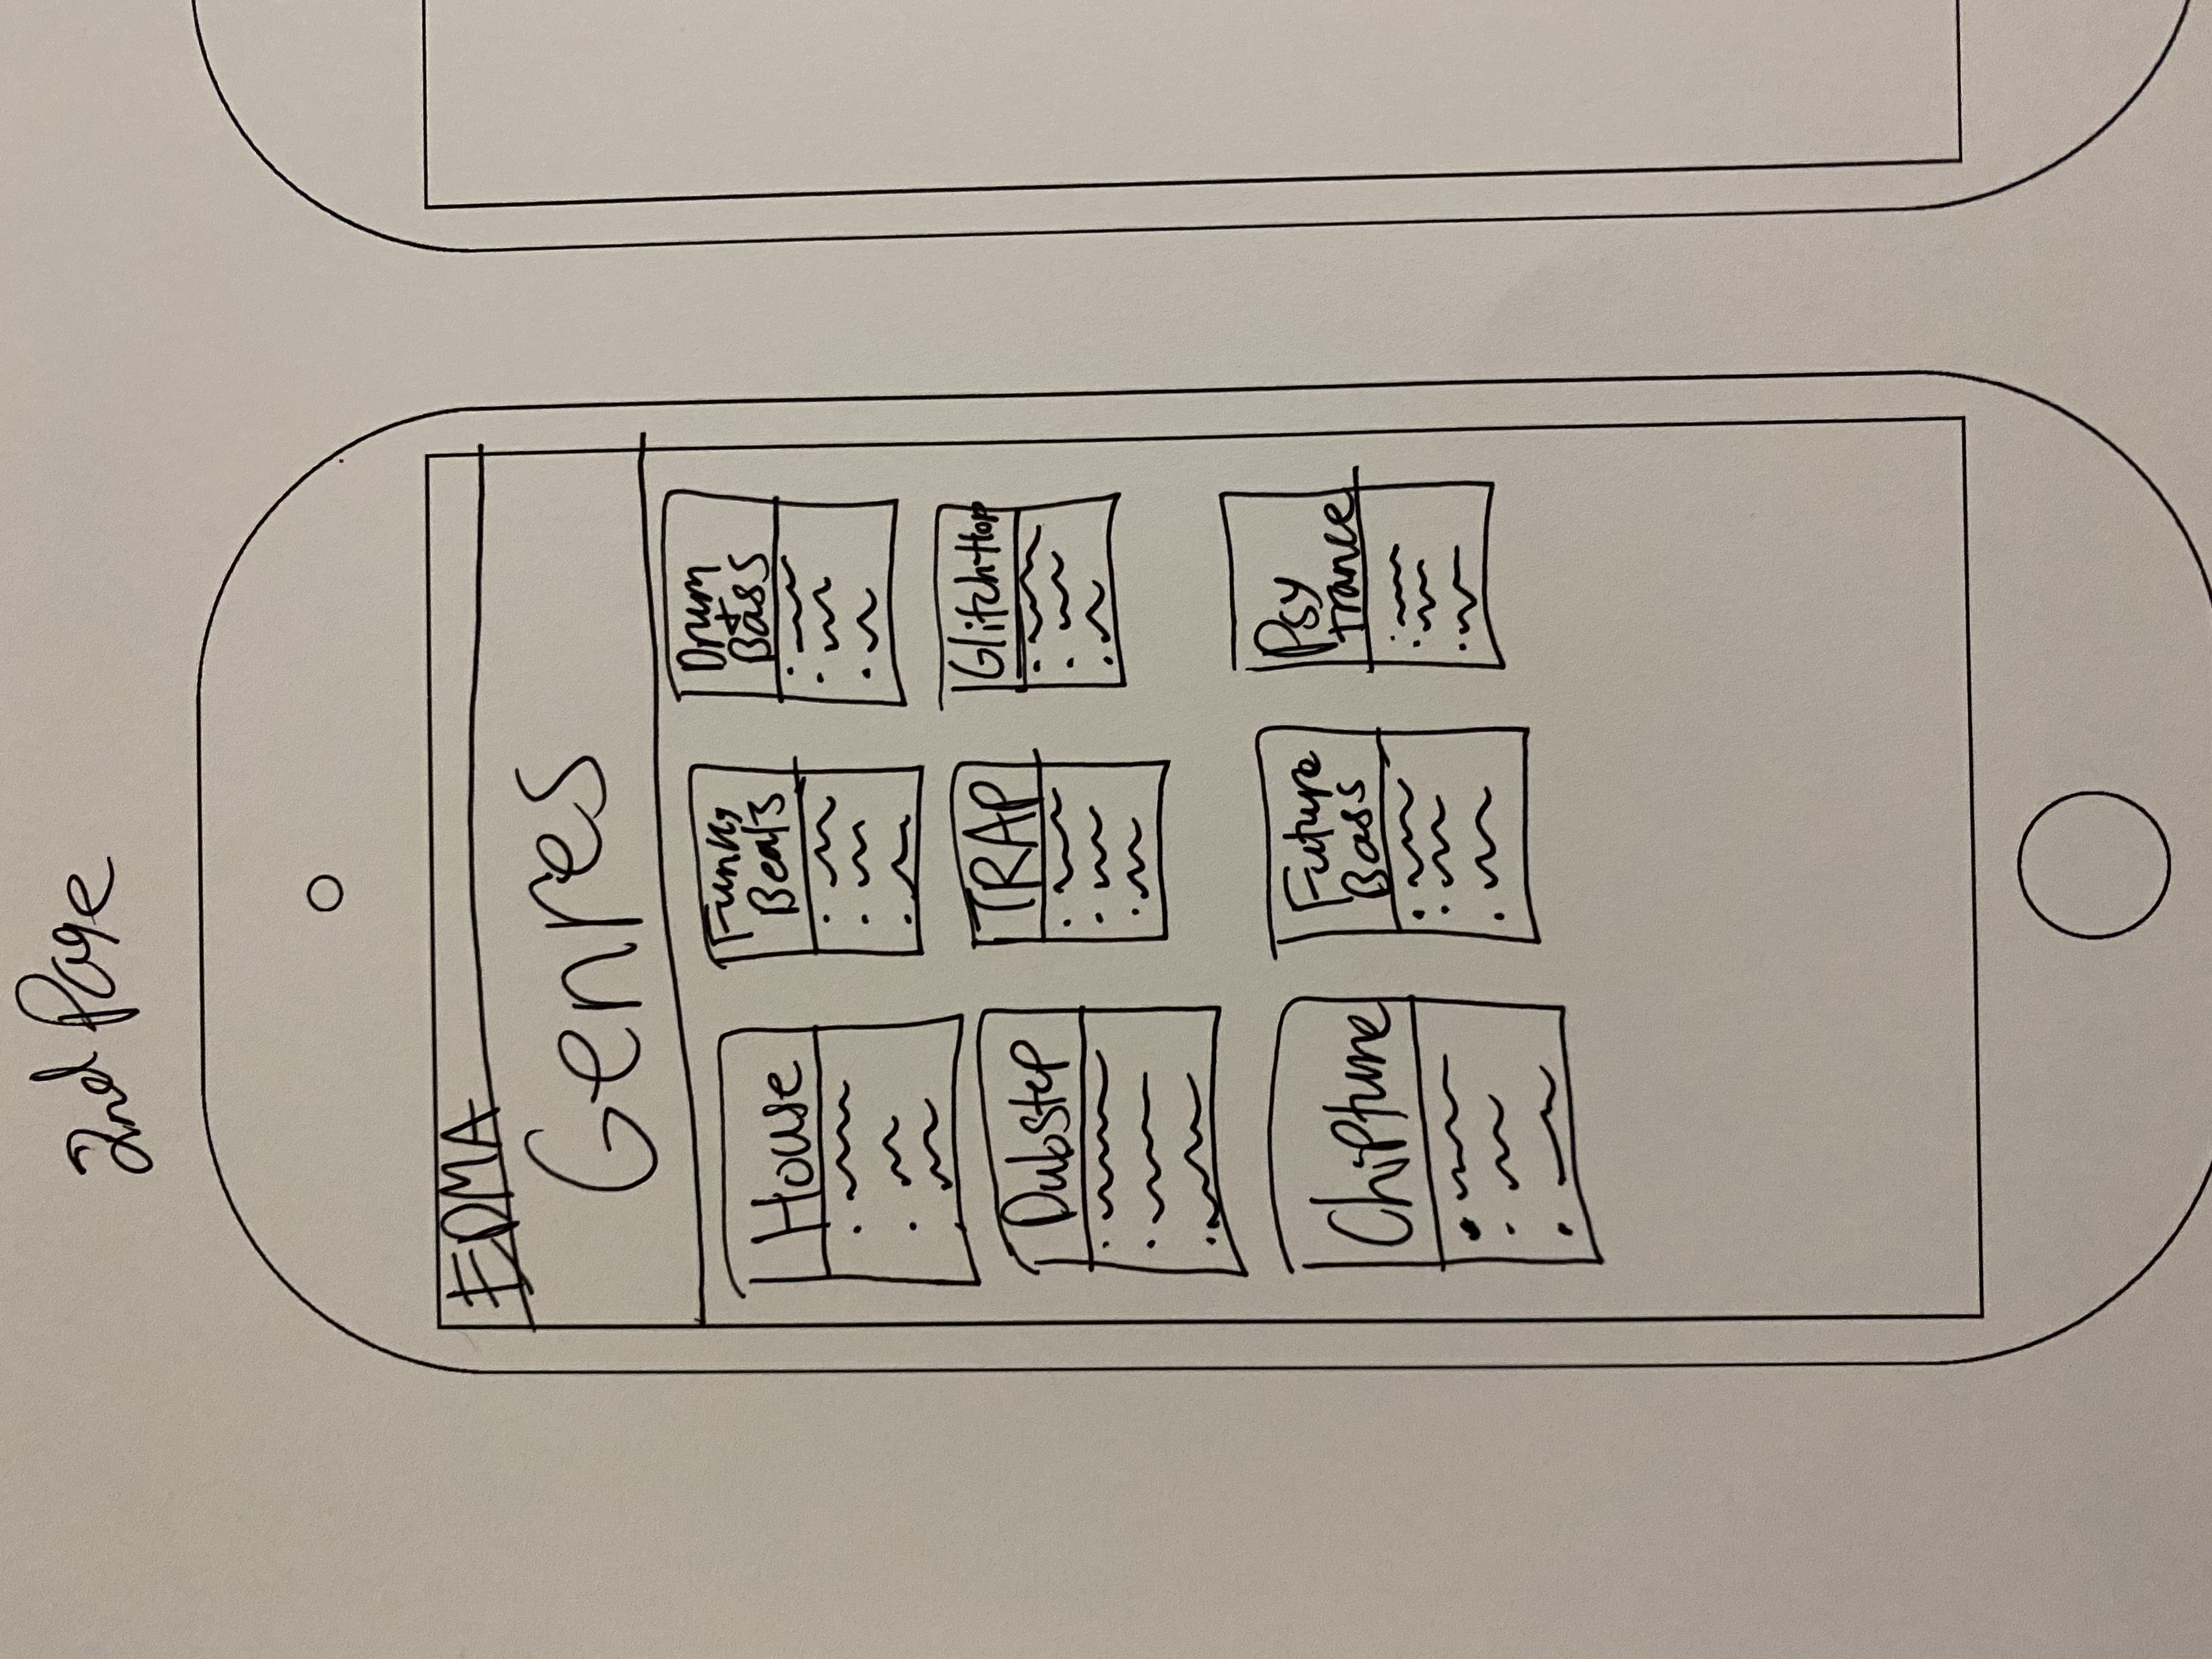 2nd Page
EDMA
Genres
House
Funky
Beats
Drum
+
Bass
Dubstep
TRAP
Glitch-Hop
Chiptune
Future
Bass
Psy
trance